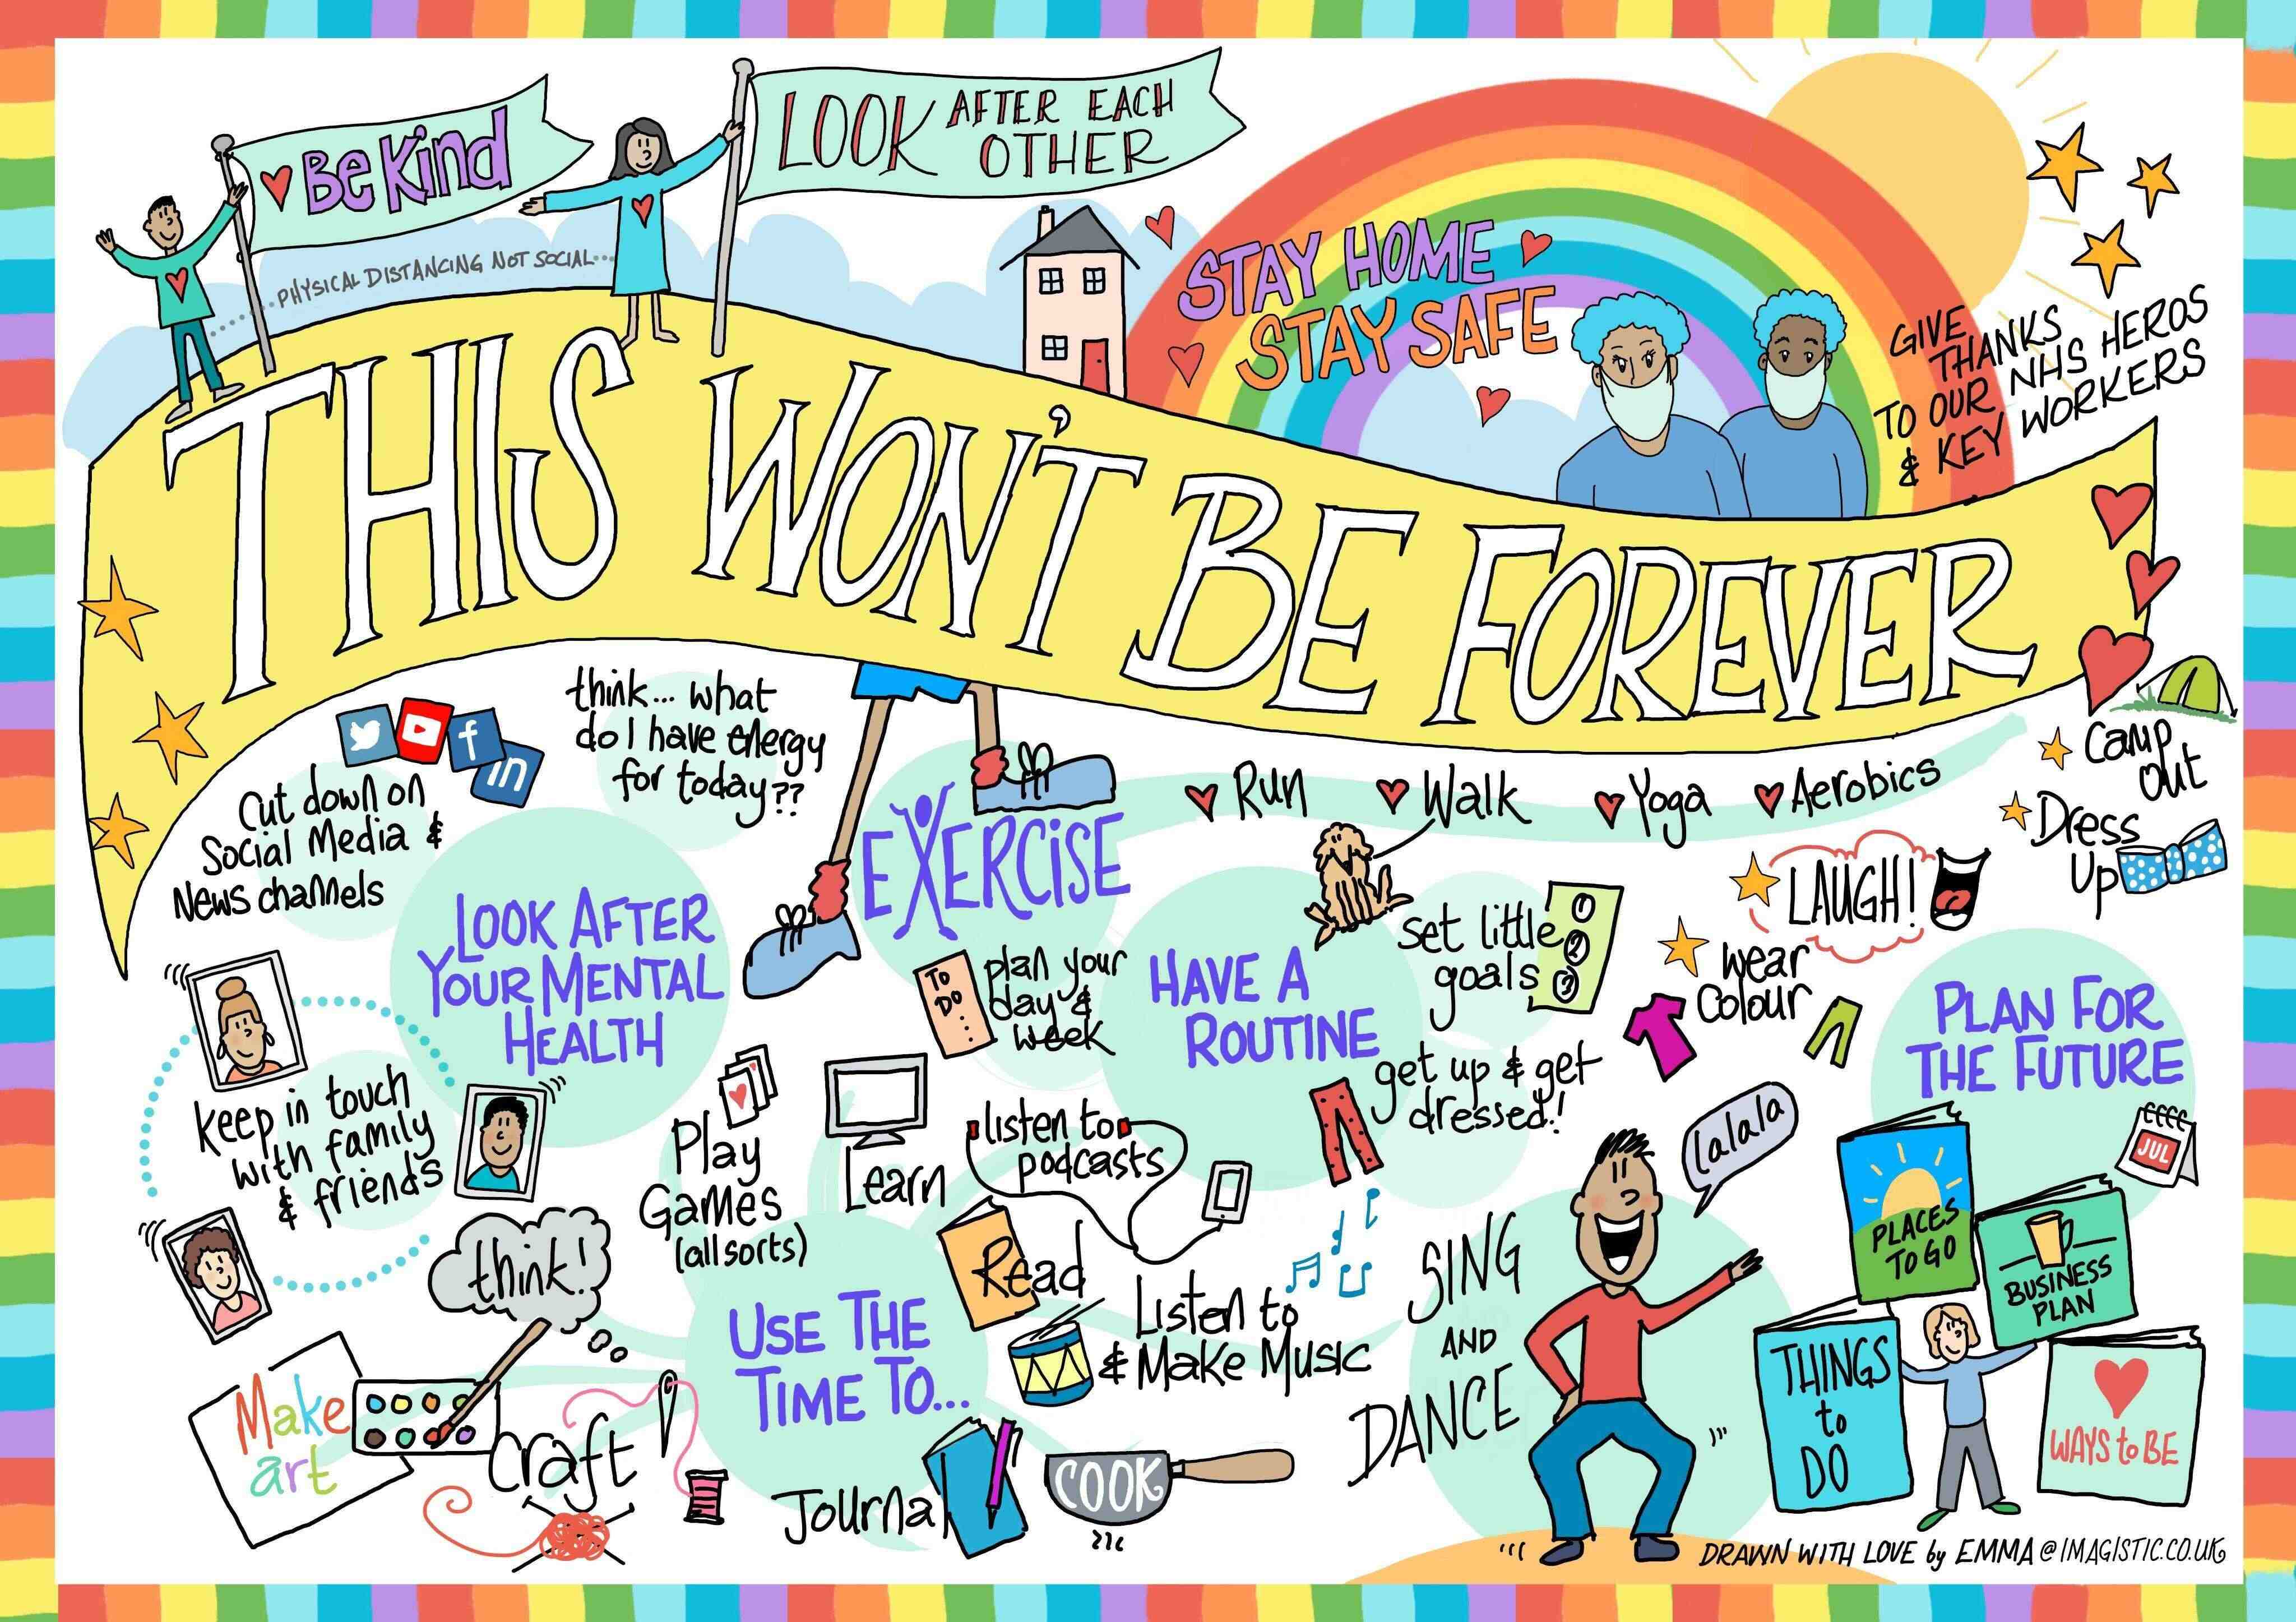 Be Kind
LOOK AFTER EACH
OTHER
PHYSICAL DISTANCING NOT SOCIAL...
STAY HOME
STAY SAFE
GIVE
THANKS
TO OUR NHS HEROS
& KEY WORKERS
THIS WON'T BE FOREVER
f
in
Cut down on
Social Media &
News channels
think... what
do I have energy
for today??
LOOK AFTER
YOUR MENTAL
HEALTH
keep in touch
with family
& friends
EXERCISE
Run
Walk
Yoga
Aerobics
Camp
Out
Dress
Up
LAUGH!
wear
Colour
TO
DO
....
plan your
day &
week
HAVE A
ROUTINE
set little
goals
1
2
3
get up & get
dressed!
PLAN FOR
THE FUTURE
JUL
PLACES
TO GO
BUSINESS
PLAN
THINGS
to
DO
WAYS to BE
Play
Games
(all sorts)
Learn
listen to
podcasts
Read
USE THE
TIME TO...
Listen to
& Make Music
think!
Make
art
craft
Journal
COOK
SING
AND
DANCE
lalala
DRAWN WITH LOVE by EMMA @ IMAGISTIC.CO.UK